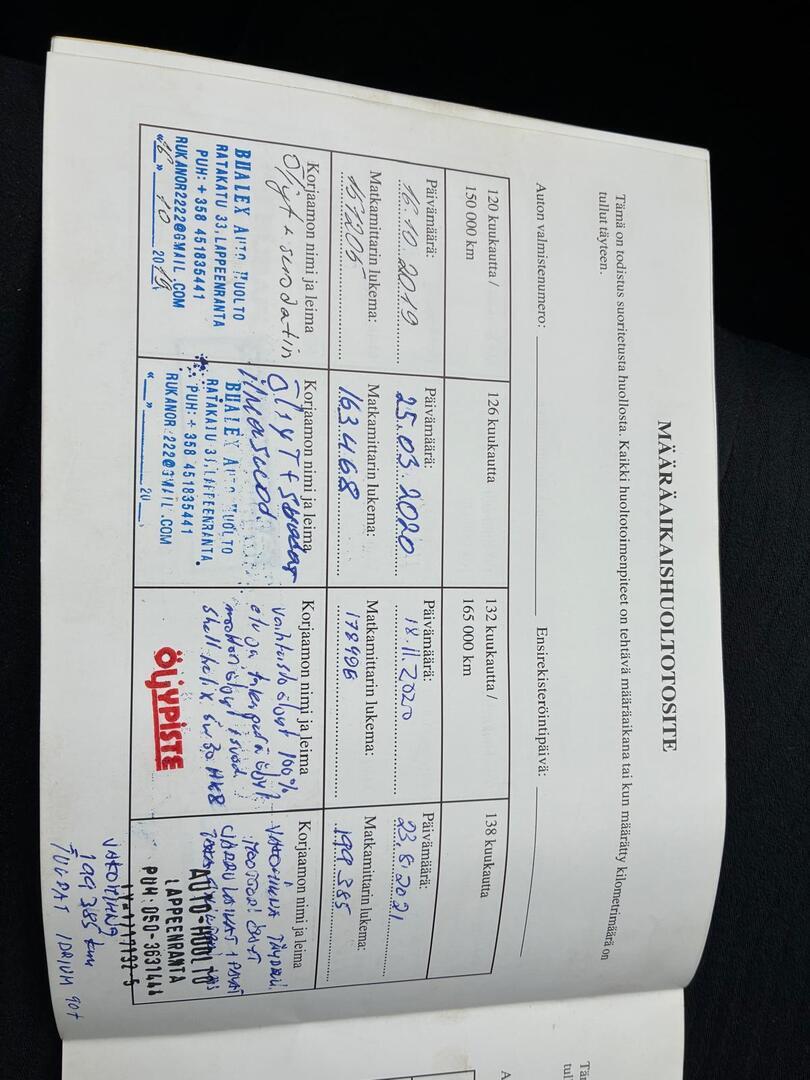 MÄÄRÄAIKAISHUOLTOTOSITE
Tämä on todistus suoritetusta huollosta. Kaikki huoltotoimenpiteet on tehtävä määräaikana tai kun määrätty kilometrimäärä on
tullut täyteen.
Auton valmistenumero: Ensirekisteröintipäivä:
120 kuukautta /
150 000 km
Päivämäärä:
16.10.2019
Matkamittarin lukema:
157205
Korjaamon nimi ja leima
Öljyt + suodatin
BIIALEX AUTO HUOLTO
RATAKATU 33, LAPPEENRANTA
PUH: + 358 451835441
RUKANOR2222@GMAIL.COM
«16» 10 2019
126 kuukautta
Päivämäärä:
25.03.2020
Matkamittarin lukema:
163468
Korjaamon nimi ja leima
ÖLJYT + Suodat
ilmasuod.
BIIALEX AUTO HUOLTO
RATAKATU 33, LAPPEENRANTA
PUH: + 358 451835441
RUKANOR2222@GMAIL.COM
«__» ____ 20__
132 kuukautta /
165 000 km
Päivämäärä:
18.11.2020
Matkamittarin lukema:
178926
Korjaamon nimi ja leima
vaihteistoöljyt 100%
etu ja takaperä öljyt
moottori öljyt + suod.
Shell helix 5w30
ÖLJYPISTE
138 kuukautta
Päivämäärä:
23.8.2021
Matkamittarin lukema:
199385
Korjaamon nimi ja leima
MOOTTORI
JARRU LAIKAT + PALAT
AUTO-HUOLTO
LAPPEENRANTA
PUH: 050-3631444
199385 km
TULPAT IDRIUM 90+